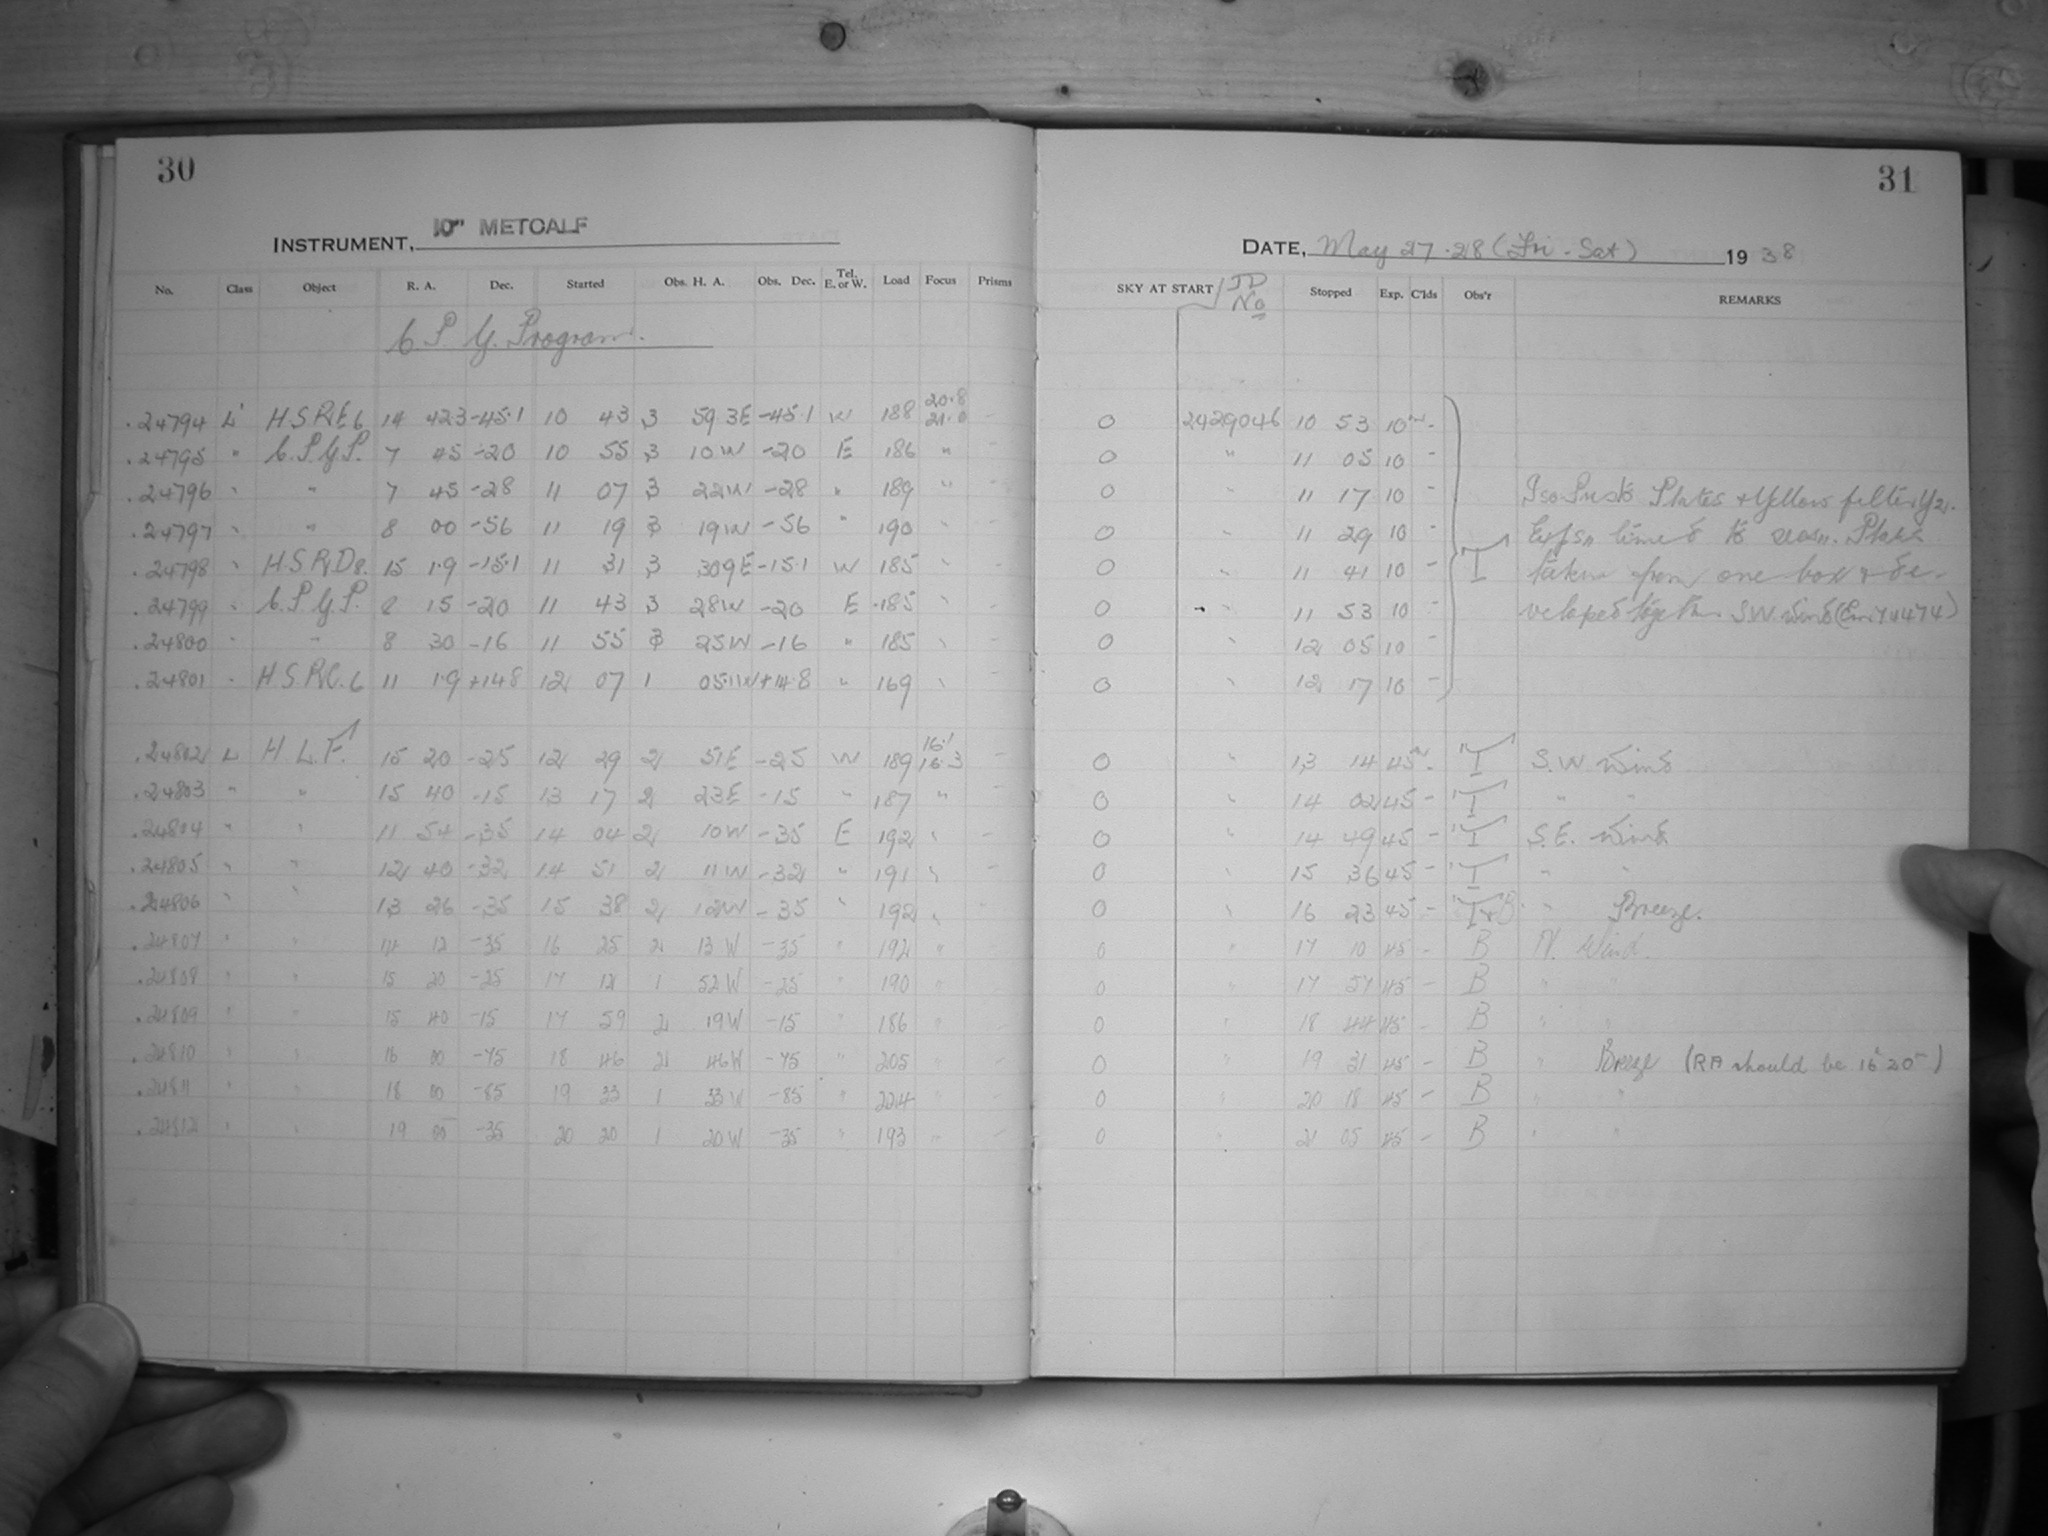 30
INSTRUMENT, 10" METCALF
No. Class Object R. A. Dec. Started Obs. H. A. Obs. Dec. Tel. E. or W. Load Focus Prisms
C. P. Y. Program.
.24794 L H.S.R.E6 14 42.3 -45.1 10 43 3 59.3E -45.1 W 188 20.8 21.0 -
.24795 " C.P.Y.P. 7 45 -20 10 55 3 10W -20 E 186 " -
.24796 " " 7 45 -28 11 07 3 22W -28 " 189 " -
.24797 " " 8 00 -56 11 19 3 19W -56 " 190 " -
.24798 " H.S.R.D8. 15 1.9 -15.1 11 31 3 30.9E -15.1 W 185 " -
.24799 " C.P.Y.P. 8 15 -20 11 43 3 28W -20 E .185 " -
.24800 " " 8 30 -16 11 55 3 25W -16 " 185 "
.24801 " H.S.R.C.6 11 1.9 +14.8 12 07 1 05.1W +14.8 " 169 "
.24802 L H.L.F. 15 20 -25 12 29 2 51E -25 W 189 16.1 16.3 -
.24803 " " 15 40 -15 13 17 2 23E -15 " 187 " -
.24804 " " 11 54 -35 14 04 2 10W -35 E 192 " -
.24805 " " 12 40 -32 14 51 2 11W -32 " 191 " -
.24806 " " 13 26 -35 15 38 2 12W -35 " 192 " -
.24807 " " 14 12 -35 16 25 2 13W -35 " 192 " -
.24808 " " 15 20 -25 17 12 1 52W -25 " 190 " -
.24809 " " 15 40 -15 17 59 2 19W -15 " 186 " -
.24810 " " 16 00 -75 18 46 2 46W -75 " 205 " -
.24811 " " 18 00 -85 19 33 1 33W -85 " 224 " -
.24812 " " 19 05 -35 20 20 1 20W -35 " 193 " -
31
DATE, May 27.28 (Fri - Sat) 1938
SKY AT START JD No Stopped Exp. C'lds Obs'r REMARKS
0 2429046 10 53 10m -
0 " 11 05 10 -
0 " 11 17 10 - Plates + Yellow filter
0 " 11 29 10 - Plates
0 " 11 41 10 - T taken from one box & de-
0 " 11 53 10 - veloped together S W wind
0 " 12 05 10 -
0 " 12 17 10 -
0 " 13 14 45m - T S.W wind
0 " 14 02 45 - T " "
0 " 14 49 45 - T S.E. wind
0 " 15 36 45 - T " "
0 " 16 23 45 - T+B " Breeze.
0 " 17 10 45 - B N. Wind.
0 " 17 57 45 - B " "
0 " 18 44 45 - B " "
0 " 19 31 45 - B " Breeze (RA should be 16 20)
0 " 20 18 45 - B " "
0 " 21 05 45 - B " "